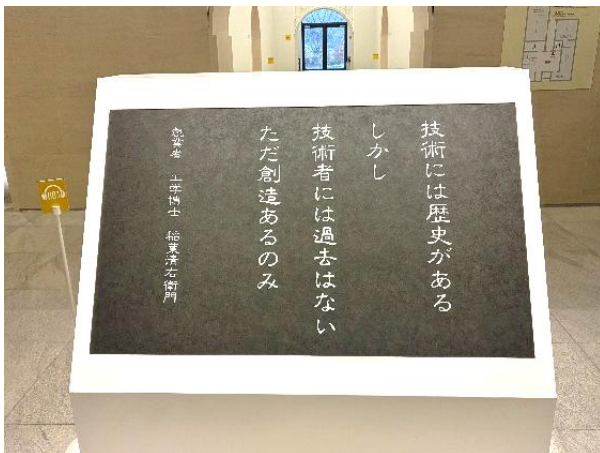 技術には歴史がある
しかし
技術者には過去はない
ただ創造あるのみ
工学博士 稲葉清右衛門